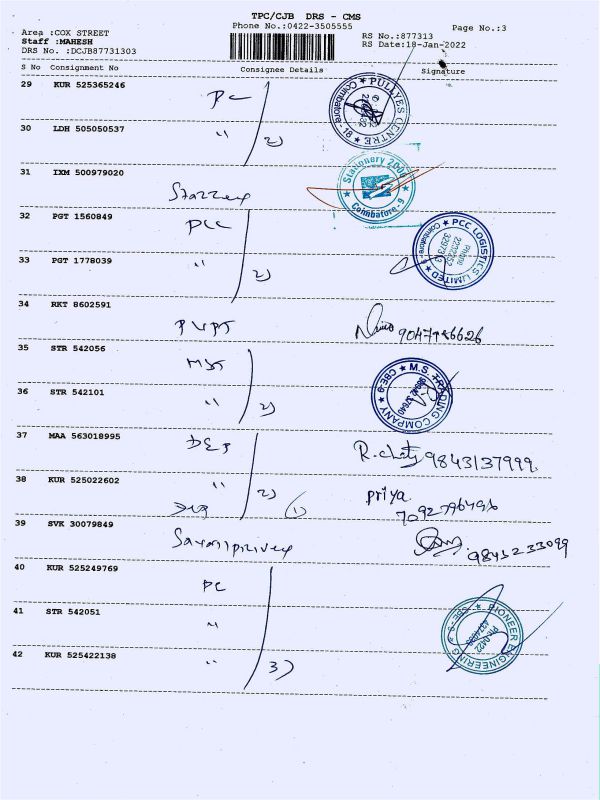 TPC/CJB DRS - CMS
Phone No.:0422-3505555
Page No.:3
Area :COX STREET
Staff :MAHESH
DRS No. :DCJB87731303
RS No.:877313
RS Date:18-Jan-2022
S No Consignment No Consignee Details Signature
29 KUR 525365246
PC
PULLYES CENTRE Coimbatore - 18
30 LDH 505050537
" 2)
31 IXM 500979020
Stationery 2000 Coimbatore - 9
32 PGT 1560849
PCC
PCC LOGISTICS LIMITED Coimbatore
33 PGT 1778039
" 2)
34 RKT 8602591
35 STR 542056
M.S. TRADING COMPANY CBE-9
36 STR 542101
" 2)
37 MAA 563018995
9843137999
38 KUR 525022602
" 2) (1)
priya
39 SVK 30079849
40 KUR 525249769
PC
41 STR 542051
"
PIONEER ENGINEERING CBE-9
42 KUR 525422138
" 3)